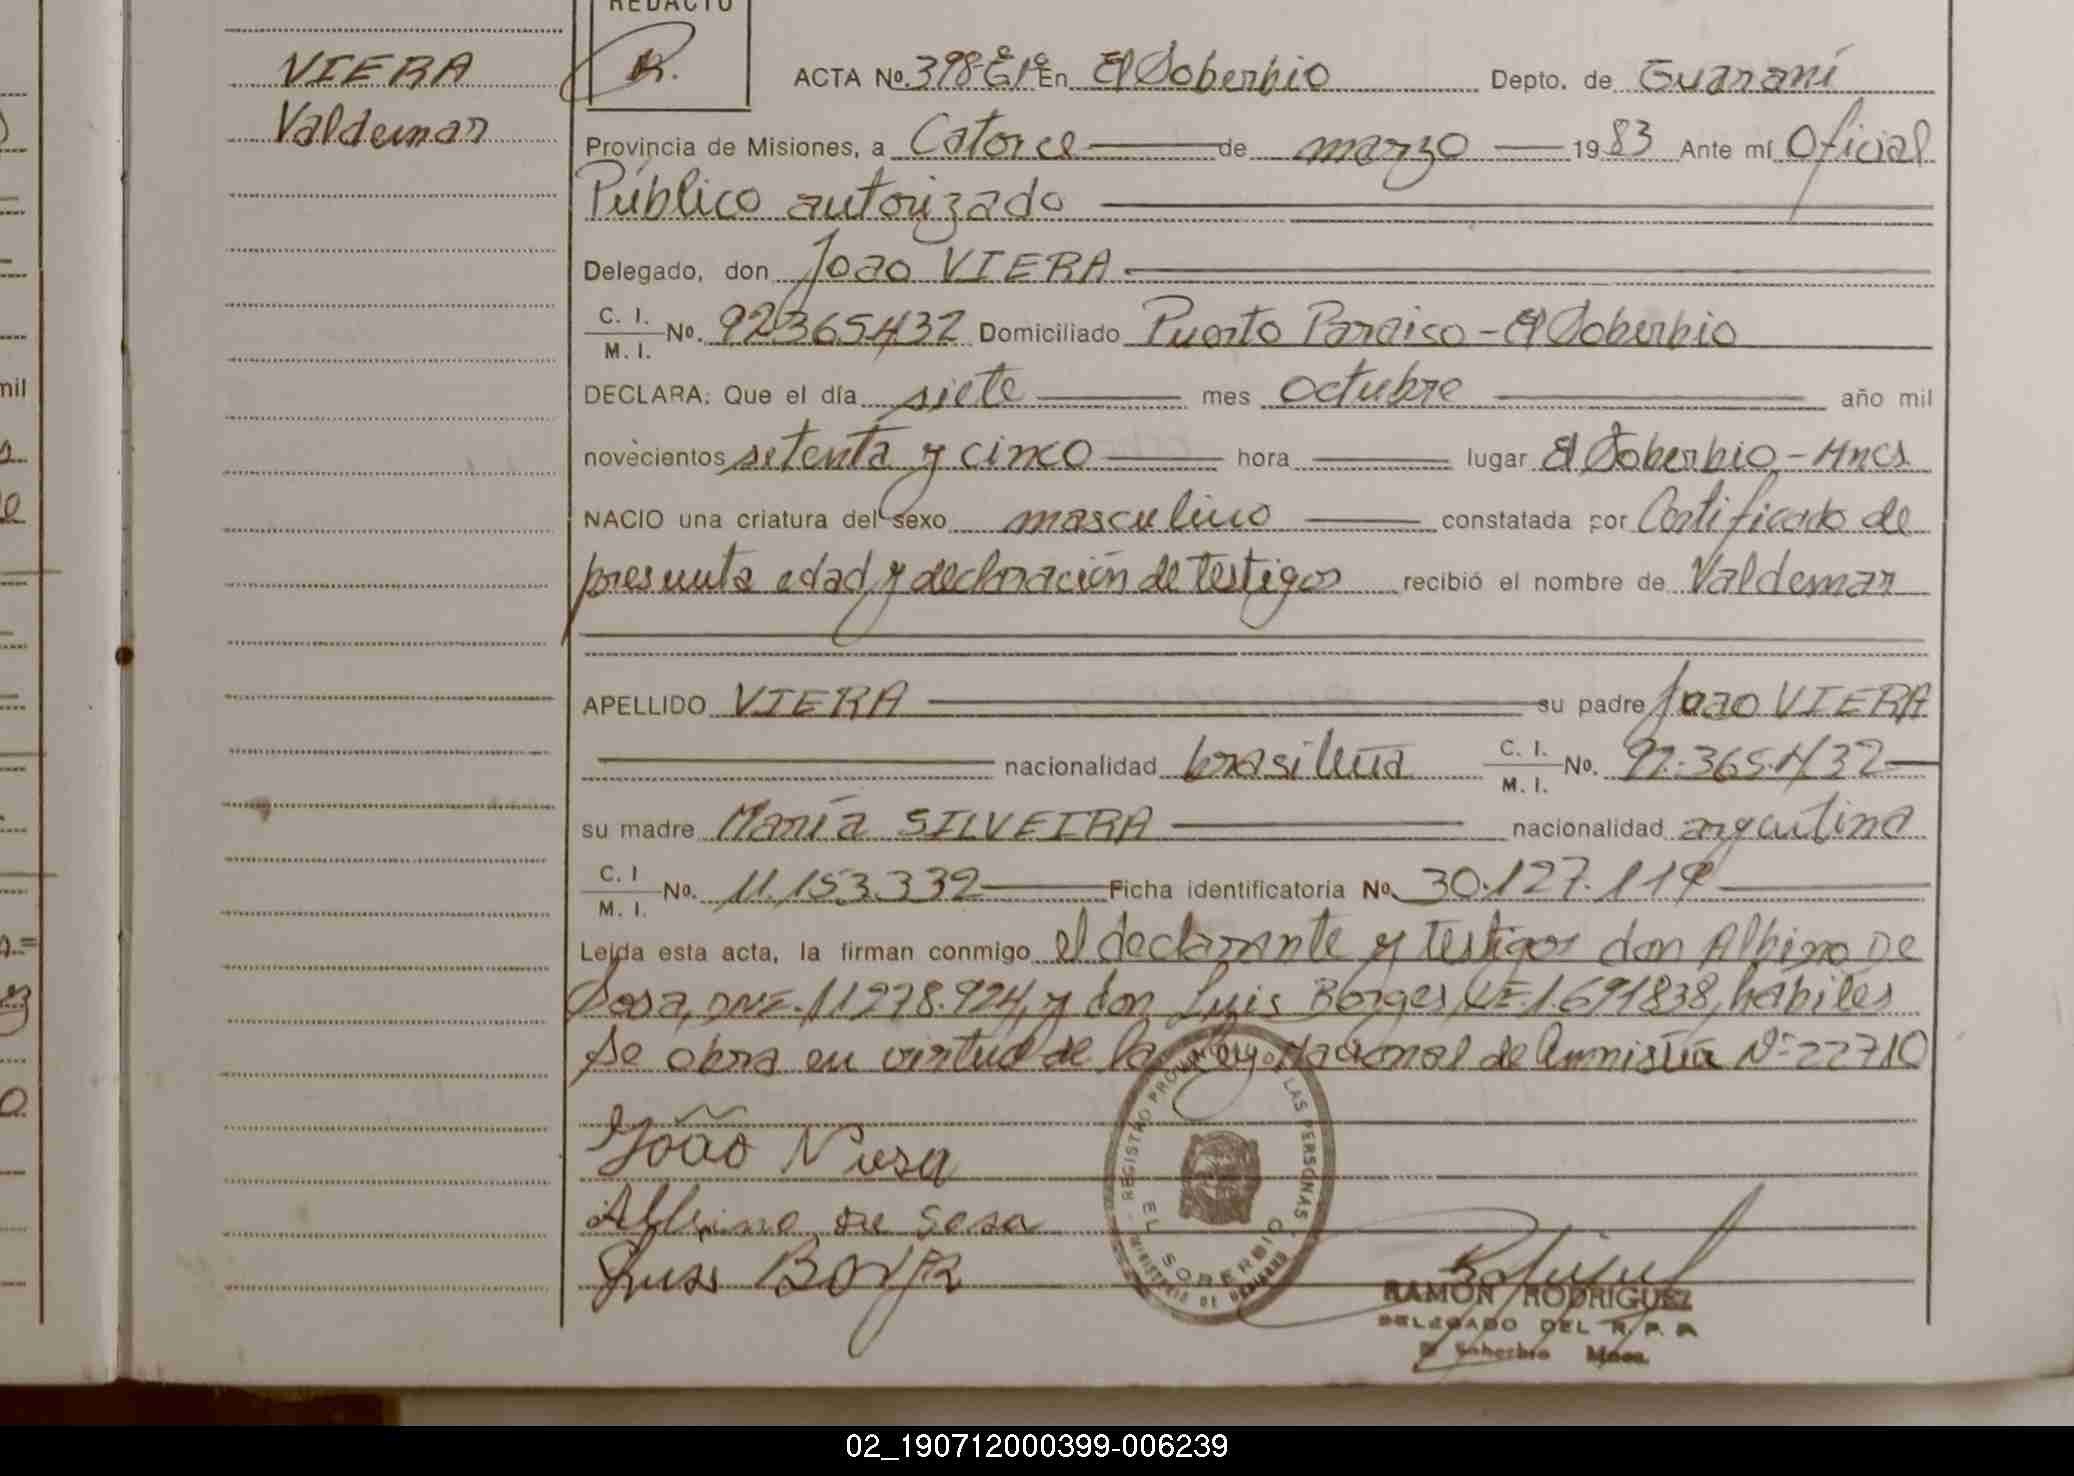 REDACTO
R.
VIERA
Valdemar
ACTA No. 398- En El Soberbio Depto. de Guaraní
Provincia de Misiones, a Catorce de marzo 1983 Ante mí Oficial
Público autorizado
Delegado, don Joao VIERA
C. I.
M. I. No. 92365432 Domiciliado Puerto Paraiso - El Soberbio
DECLARA: Que el día siete mes octubre año mil
novecientos setenta y cinco hora lugar El Soberbio - Mnes
NACIO una criatura del sexo masculino constatada por Certificado de
presunta edad y declaración de testigos recibió el nombre de Valdemar
APELLIDO VIERA su padre Joao VIERA
nacionalidad brasileña C. I. M. I. No. 92.365.432
su madre María SILVEIRA nacionalidad argentina
C. I M. I. No. 11.153.332 Ficha identificatoria No. 30.127.119
Leída esta acta, la firman conmigo el declarante y testigos don Albino De
Sosa, DNI. 11278.924, y don Luis Borges, LE.1.691838, habiles
Se obra en virtud de la Ley Nacional de Amnistía Nº 22710
João Viera
Albino de Sosa
Luis
REGISTRO PROVINCIAL DE LAS PERSONAS
EL SOBERBIO
MINISTERIO DE GOBIERNO
RAMON RODRIGUEZ
DELEGADO DEL R. P. P.
El Soberbio Mnes.
mil
02_190712000399-006239